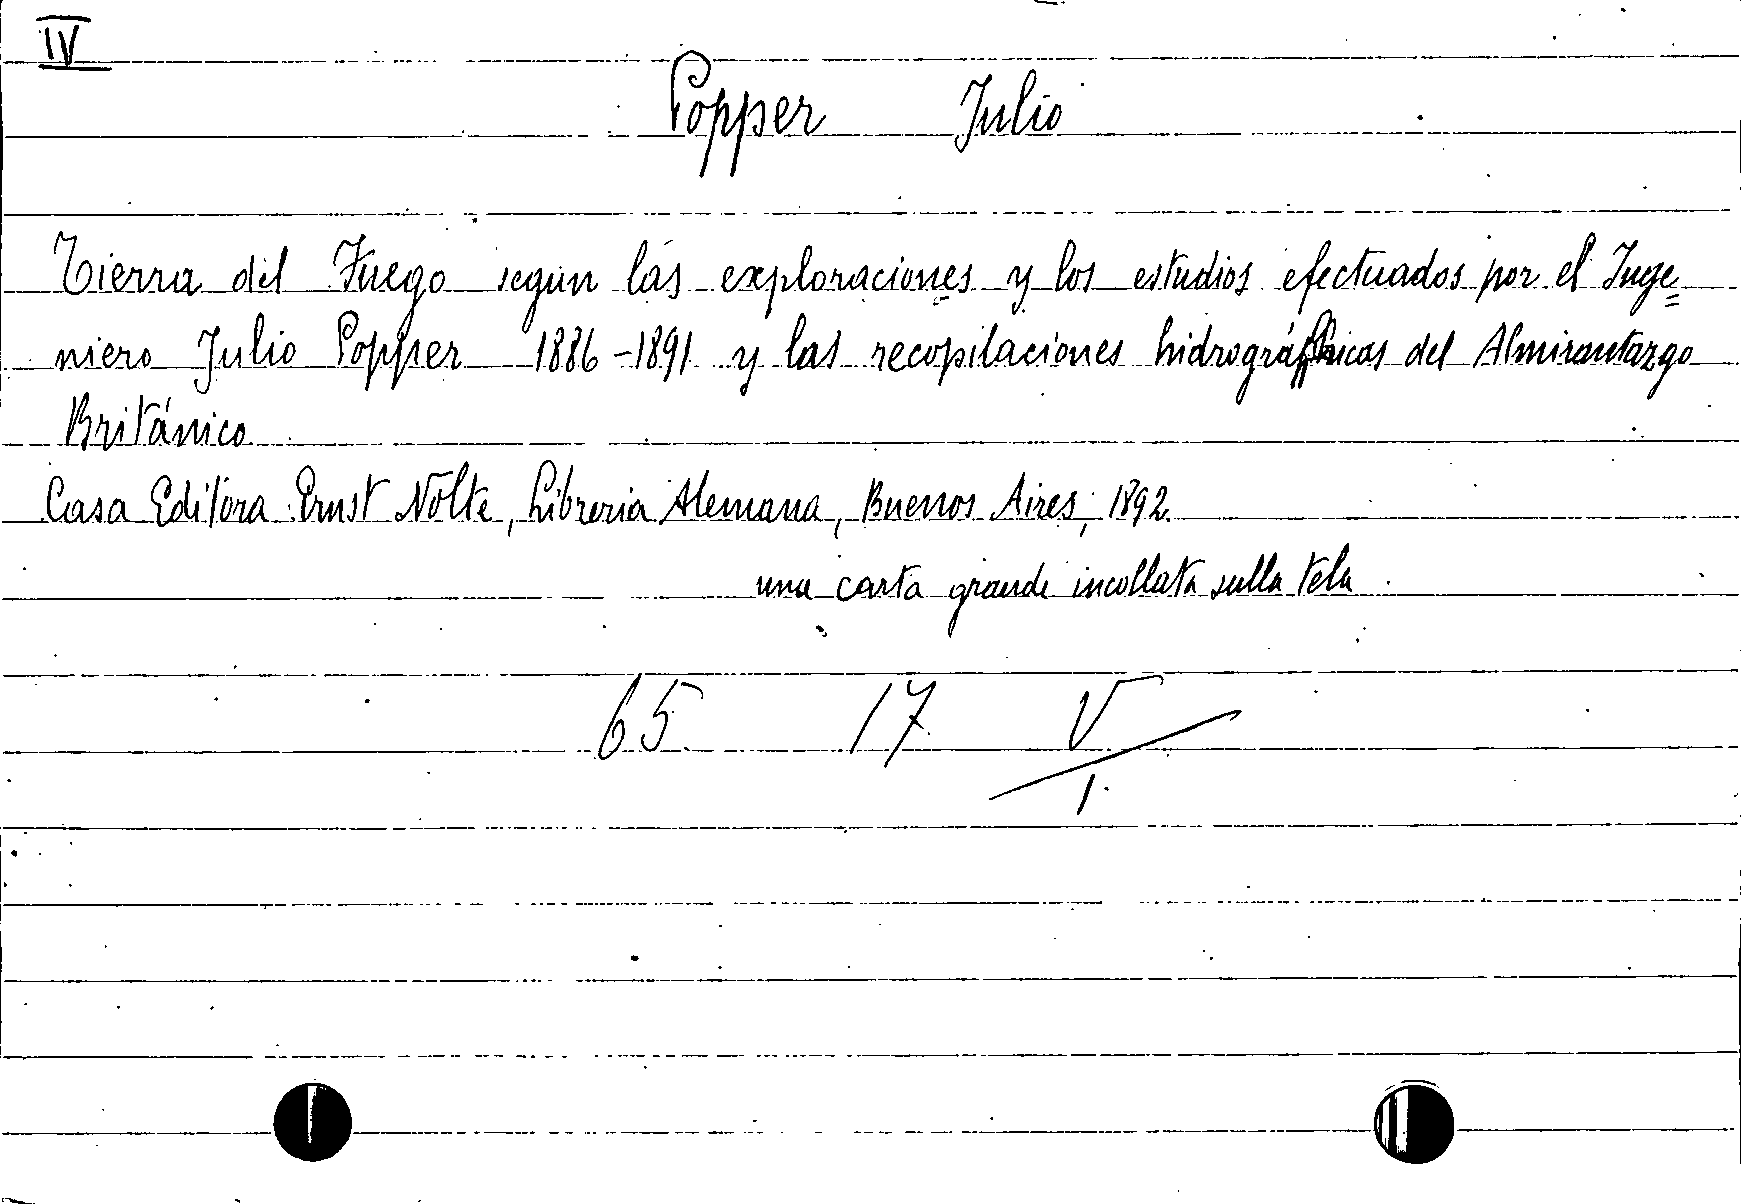 IV
Popper Julio
Tierra del Fuego según las exploraciones y los estudios efectuados por el Inge=
niero Julio Popper 1886-1891 y las recopilaciones hidrográficas del Almirantazgo
Británico
Casa Editora Ernst Nolte, Libreria Alemana, Buenos Aires, 1892.
una carta grande incollata sulla tela
65 17 V
1.